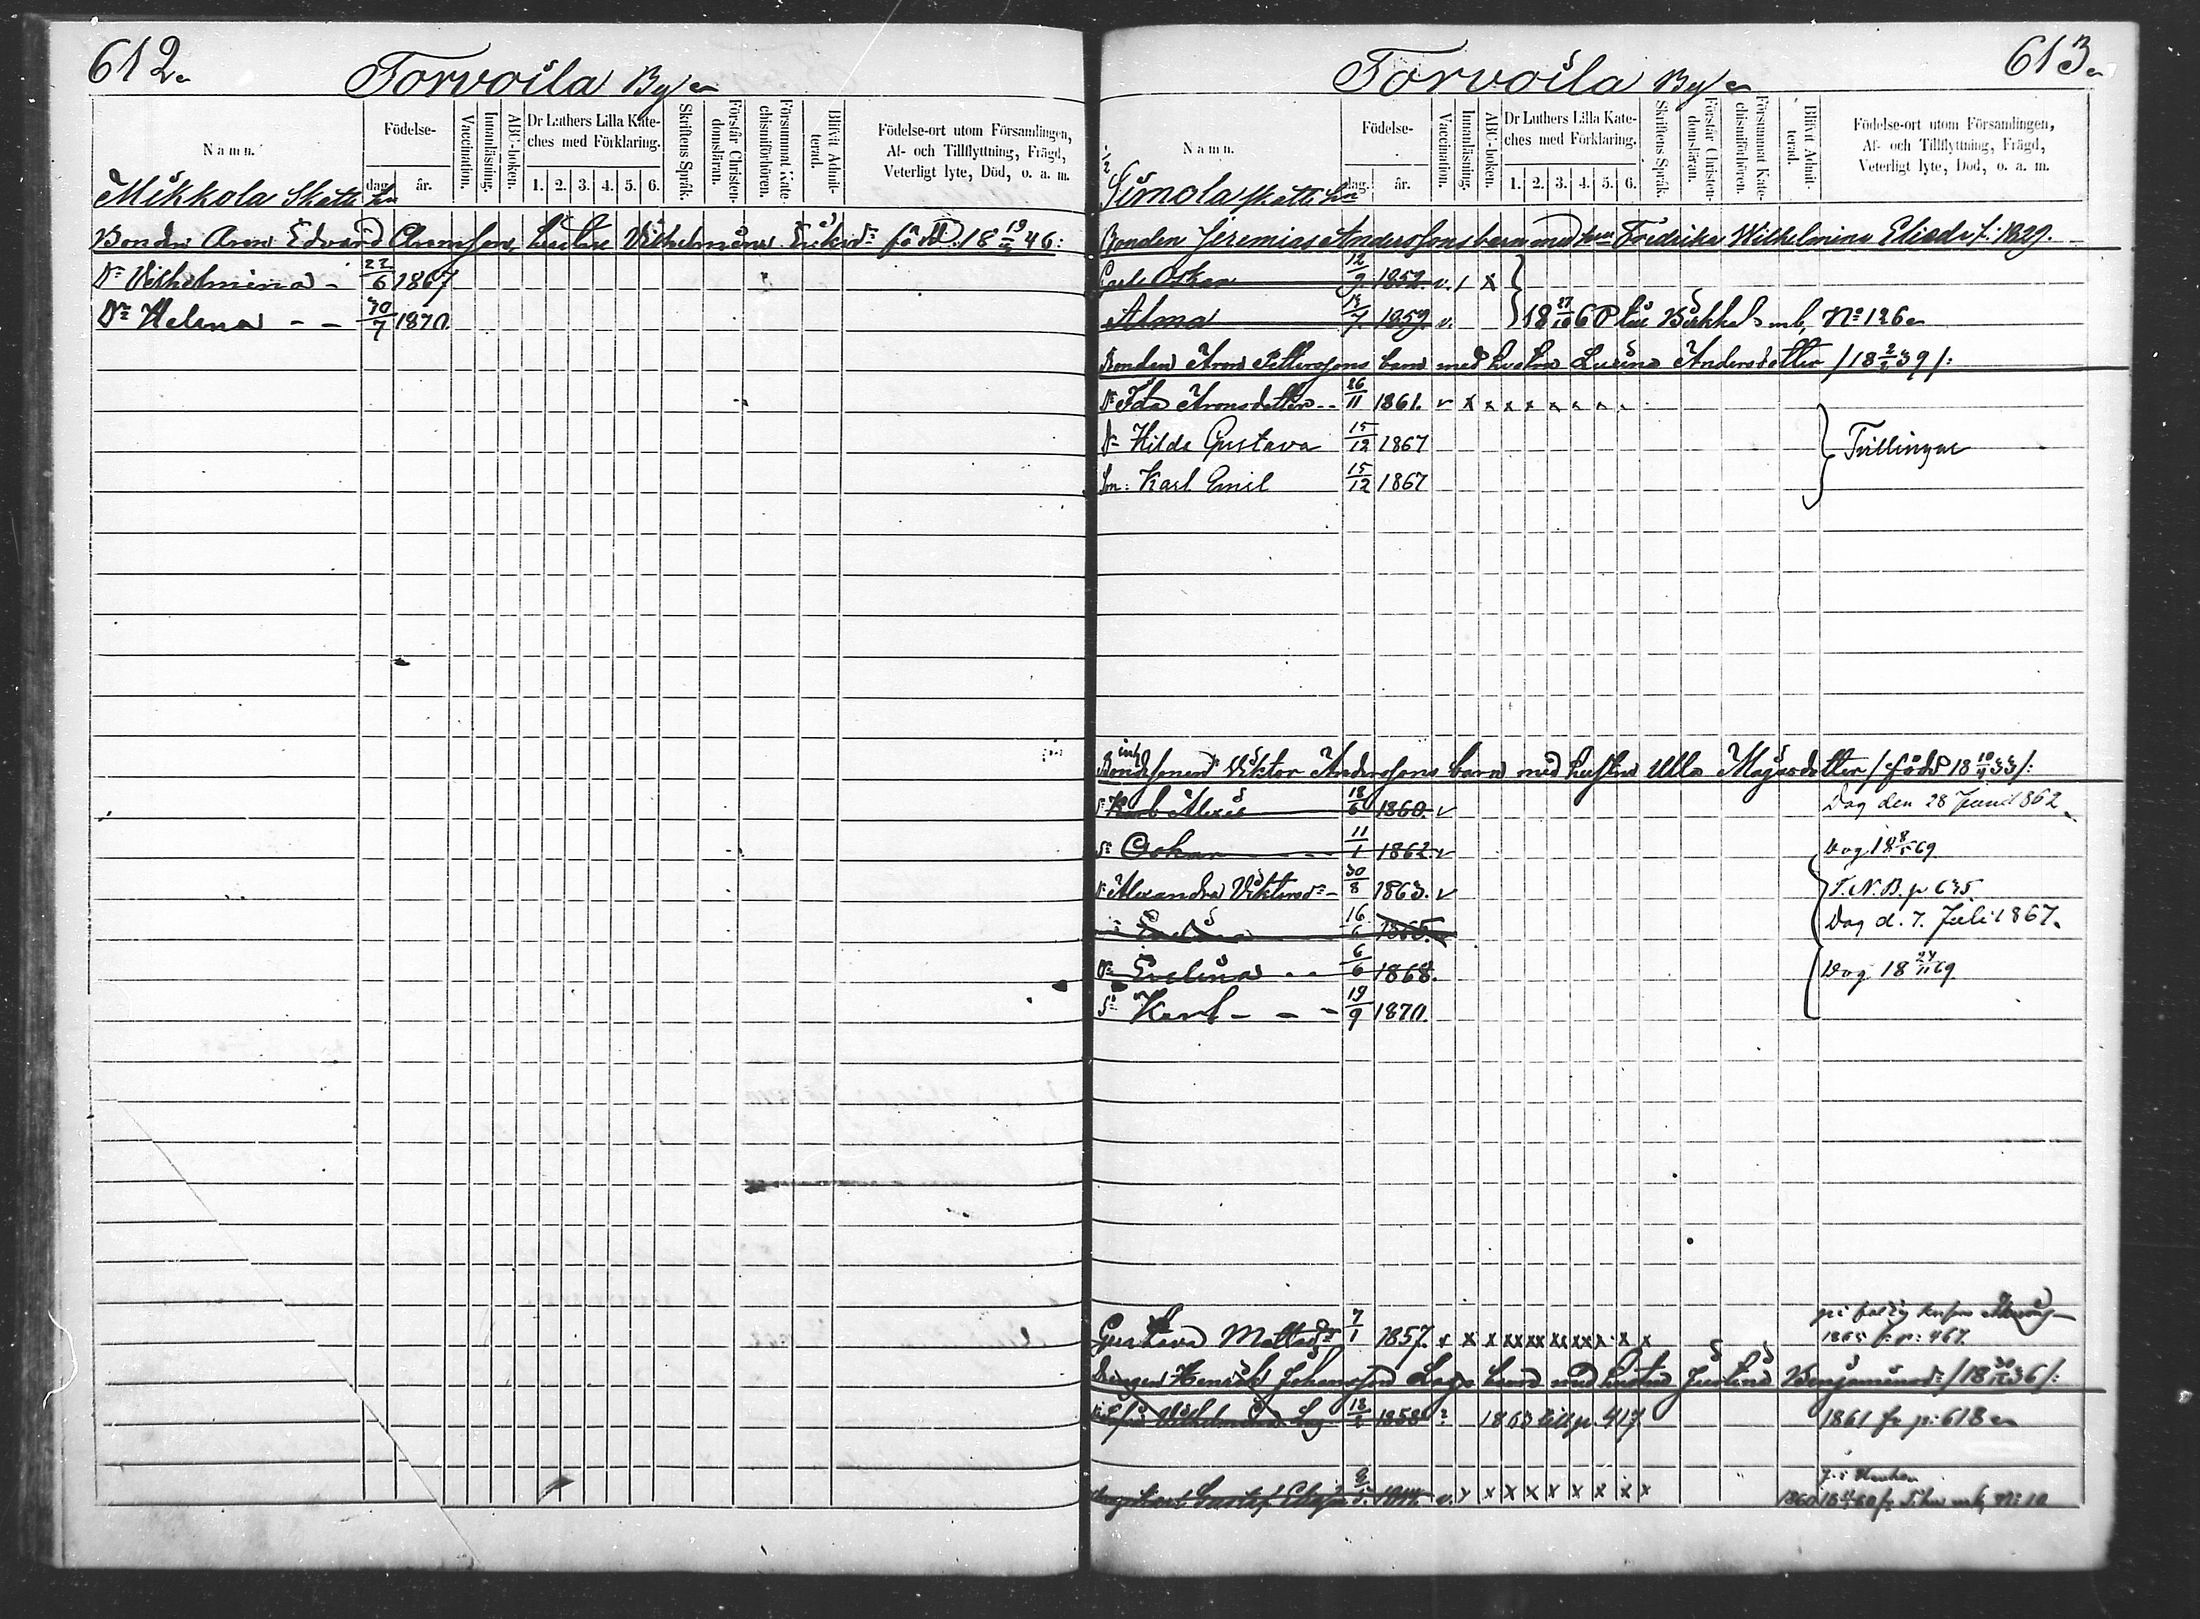 612.
Torvoila By
Namn.
Födelse-
dag. år.
Vaccination.
Innanläsning.
ABC-boken.
Dr Luthers Lilla Kate-
ches med Förklaring.
1. 2. 3. 4. 5. 6.
Skriftens Språk.
Förstår Christen-
domsläran.
Försummat Kate-
chismiförhören.
Blifvit Admit-
terad.
Födelse-ort utom Församlingen,
Af- och Tillflyttning, Frägd,
Veterligt lyte, Död, o. a. m.
Mikkola Skatte
Bonden Aron Edvard hustru Vilhelmina född 18 46:
Dr Vilhelmina - 22/6 1867
Dr Helena - - 30/7 1870.
613.
Torvoila By
Namn.
Födelse-
dag. år.
Vaccination.
Innanläsning.
ABC-boken.
Dr Luthers Lilla Kate-
ches med Förklaring.
1. 2. 3. 4. 5. 6.
Skriftens Språk.
Förstår Christen-
domsläran.
Försummat Kate-
chismiförhören.
Blifvit Admit-
terad.
Födelse-ort utom Församlingen,
Af- och Tillflyttning, Frägd,
Veterligt lyte, Död, o. a. m.
1/2 Simola Skatte
Bonden Jeremias Anderssons barn med Fredrika Wilhelmina 1829.
Carl Oskar 12/9 1852. v. / x
Alma 1859. v. mb, No 126
Bonden Aron Petterssons barn med hustru Lovina Andersdotter /18 2/2 39/:
Dr Ida Aronsdotter - - 26/11 1861. v x x x x x x x
Dr Hilda Gustava 15/12 1867 Tvillingar
Son: Karl Emil 15/12 1867
Bondesonen Viktor Anderssons barn med hustru Ulla Majasdotter /född 18 33/:
Karl Alexis 18/6 1860. v Dog den 28 Juni 1862
Sn Oskar - - - 11/1 1862. v Dog 18 8/5 69
Dr Alexandra Viktorsdr - 30/8 1863. v T.N.B. p 635
16/6 1865. Dog d. 7. Juli 1867.
Dr Evelina - - 6/6 1868. Dog 18 24/11 69
Sn Karl - - - 19/9 1870.
Gustava Mattsdr 7/1 1857. v x x x x x x x x x x p: 467.
Drengen Henrik Johansson Lags barn med hustru Justina Benjaminsdr /18 36/:
Sofia Vilhelmina Lag 1858 1863 till p. 417 1861 fr p: 618
Gustaf v. x x x x x x x x 1860 mb, No 10